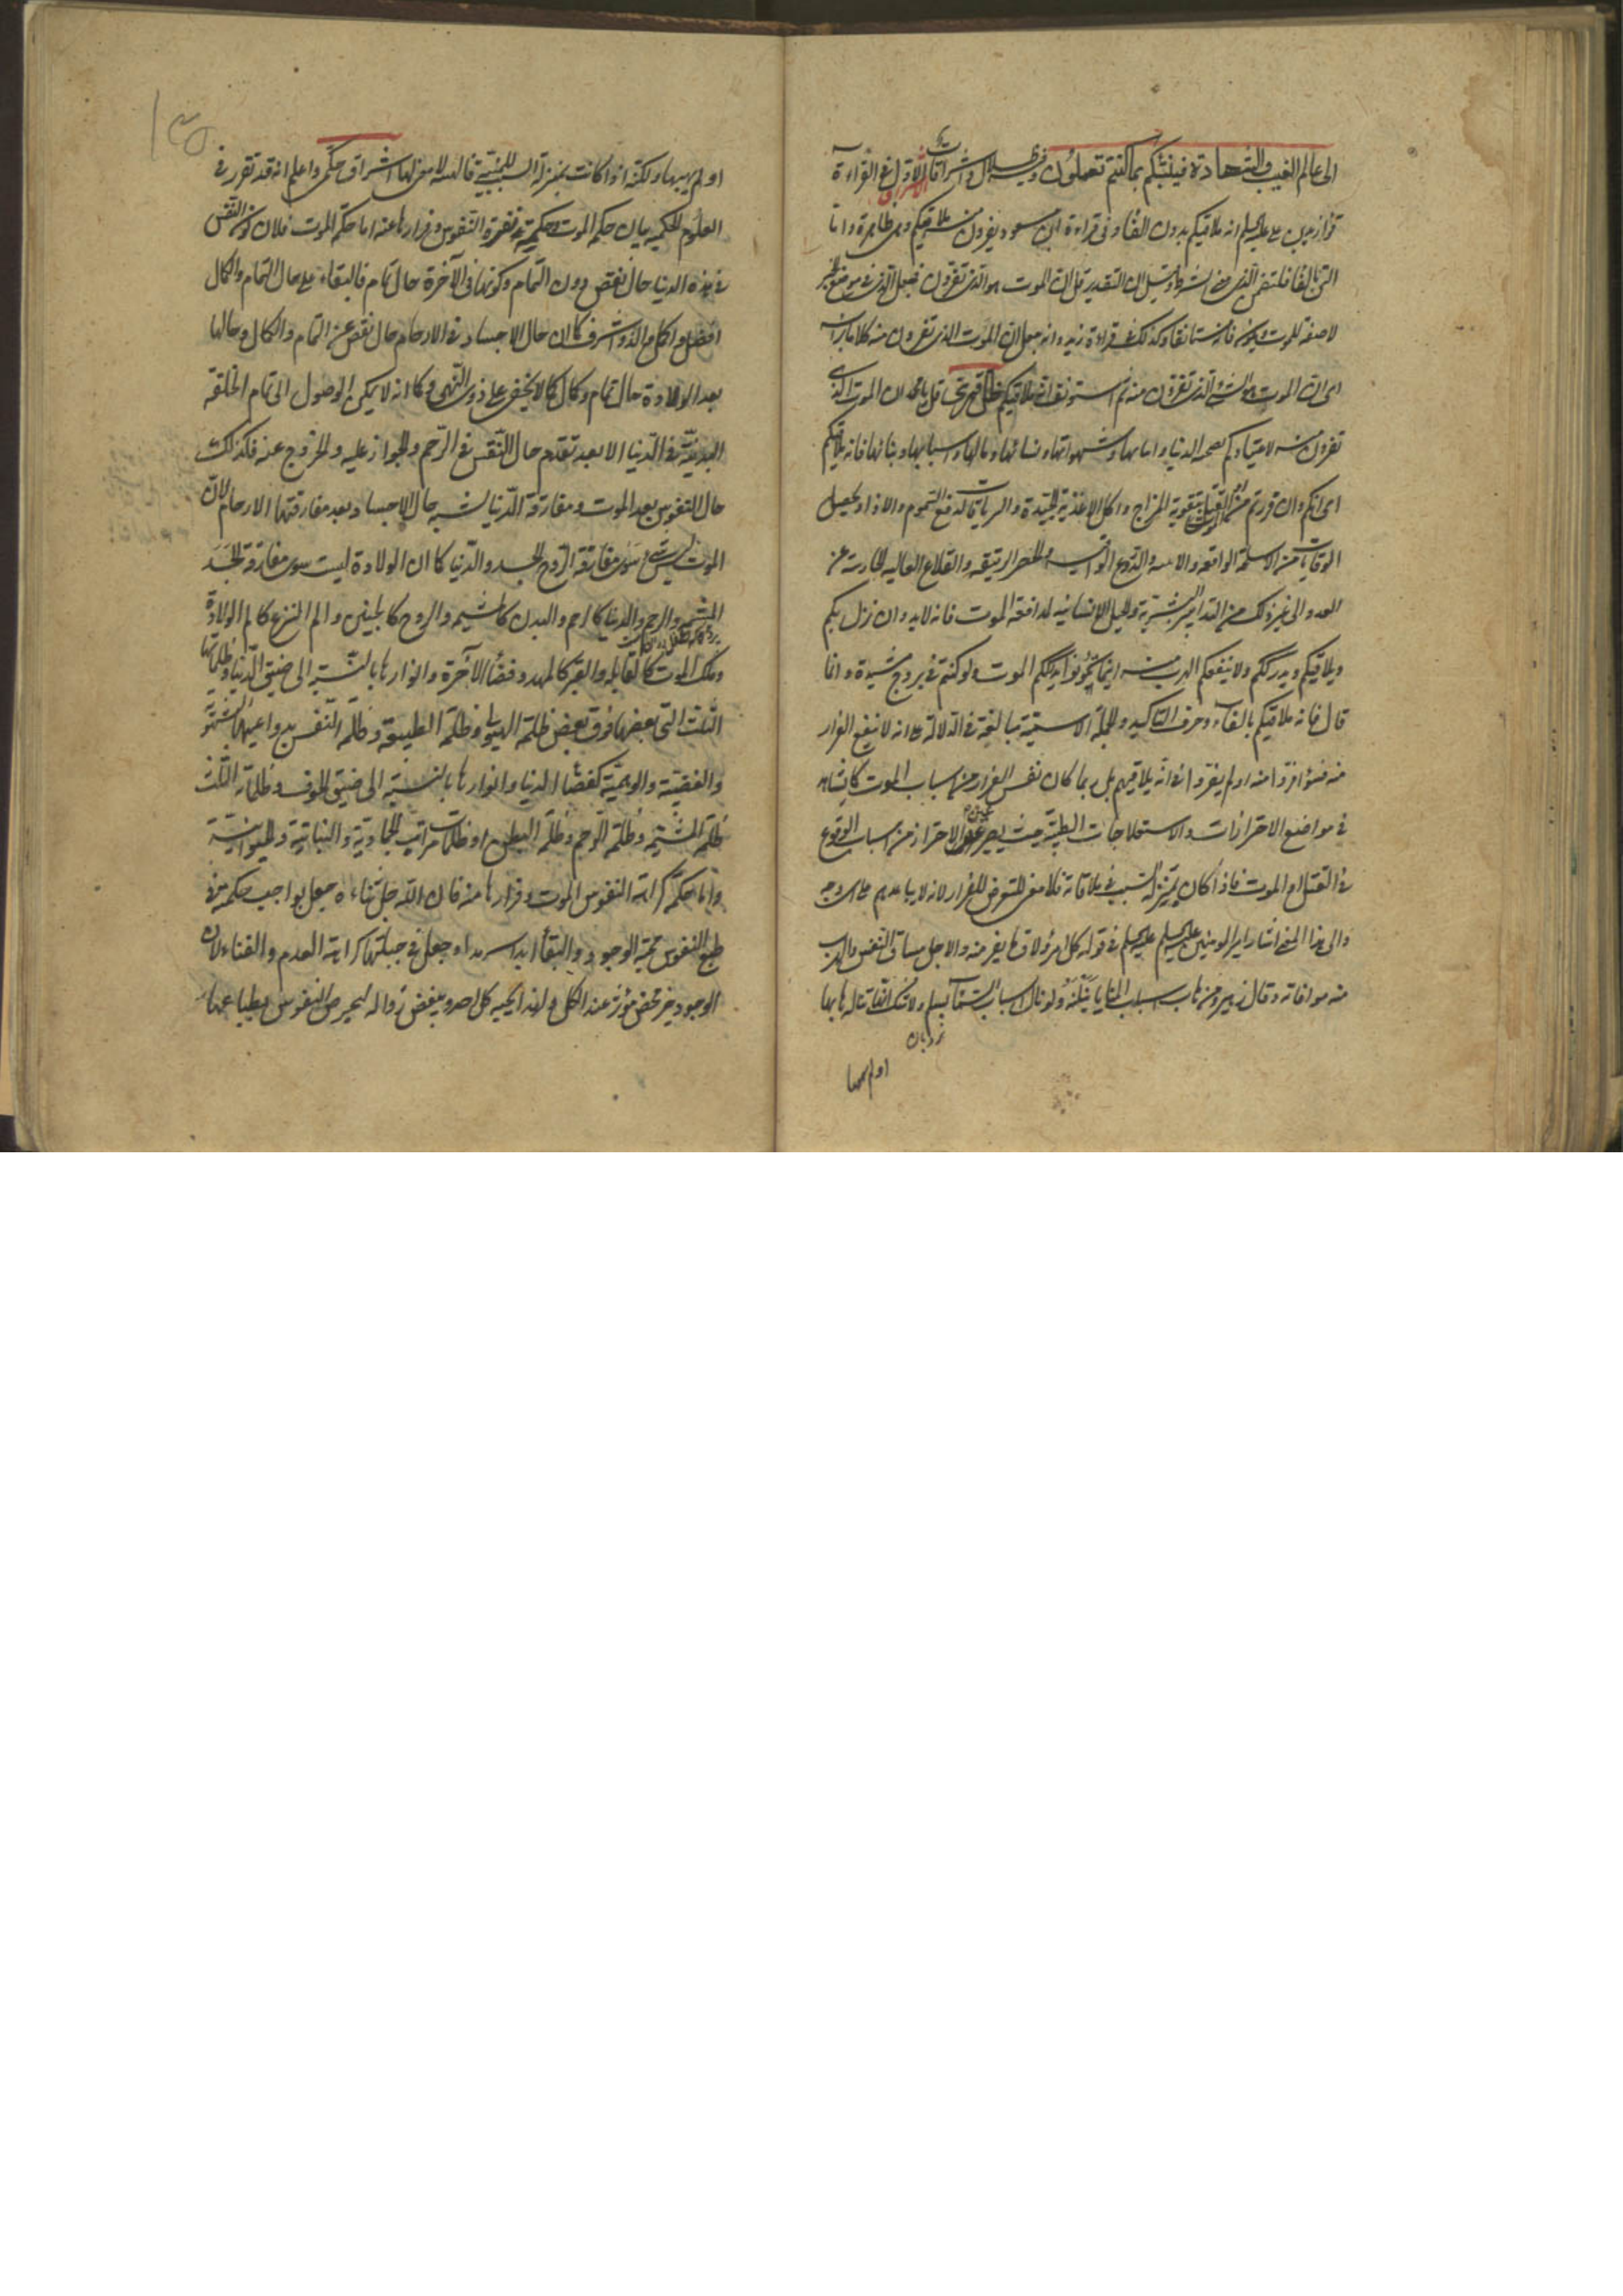 الى عالم الغيب والشهادة فينبئكم بما كنتم تعملون وفيه اشراقات الاول في القراءة
قرأ زيد بن علي عليه السلم انه ملاقيكم بدون الفاء وفي قراءة ابن مسعود تفرون منه ملاقيكم وهي ظاهرة واما
التي بالفا فلتضمن الذي معنى الشرط وقيل ان التقدير قل ان الموت هو الذي تفرون فجعل الذي في موضع الخبر
لا صفة للموت ويكون فانه مستانفا وكذلك في قراءة زيد وانه جعل ان الموت الذي تفرون منه كلاما براسه
اى ان الموت هو الشىء الذى تفرون منه ثم استونف انه ملاقيكم قل يا محمد ان الموت الذى
تفرون منه لاعتيادكم بصحة الدنيا واما بها وشهواتها ونسائها ومالها واسبابها وبنائها فانه ملاقيكم
اى انكم وان فررتم من الموت او القتل بتقوية المزاج واكل الاغذية الجيدة والترياقات لدفع السموم والاذا وتحصيل
الوقايات من الاسلحة الواقعة والالبسة والدروع الواقية والحصر الرتيقه والقلاع العاليه الحارسة عن
العدو الى غير ذلك من التدابير البشرية والحيل الانسانيه لمدافعة الموت فانه لابد وان نزل بكم
ويلاقيكم ويدرككم ولا ينفعكم الهرب منه اينما تكونوا يدرككم الموت ولو كنتم في بروج مشيدة وانما
قال فانه ملاقيكم بالفاء وحرف التاكيد والجملة الاسمية مبالغة في الدلالة على انه لا ينفع الفرار
منه فسوا فروا منه او لم يفروا فانه يلاقيهم بل ربما كان نفس الفرار من اسباب الموت كما يشاهد
في مواضع الاحترازات والاستعلاجات الطبية حيث يصير عين الاحتراز من اسباب الوقوع
في القتل او الموت فاذا كان بمنزلة السبب في ملاقاته فلا معنى للتعرض للفرار لانه لا يباعدهم على اى وجه
والى هذا المعنى اشار امير المومنين عليه السلم في قوله كل امرؤ لاق ما يفر منه والاجل مساق النفس والهرب
منه موافاته وقال زهير ومن هاب اسباب المنايا ينلنه ولو نال اسباب السماء بسلم ولا شك انها تناله هابها
نردبان
او لم يهبها
او لم يهبها ولكنه اذا كانت بمنزلة السبب للمنية فالهيبة لا معنى لها اشراق حكمى واعلم انه قد تقرر في
العلوم الحكميه بيان حكم الموت وحكمة نفرة النفوس وفرارها عنه اما حكمة الموت فلان كون النفس
في هذه الدنيا حال نقص دون التمام وكونها في الآخرة حال تمام فالبقاء على حال التمام والكمال
افضل واكمل والذ واشرف كما ان حال الاجساد في الارحام حال نقص عن التمام والكمال وحالها
بعد الولادة حال تمام وكمال كما لا يخفى على ذوى النهى وكما انه لا يمكن الوصول الى تمام الخلقة
البدنية في الدنيا الا بعد تقدم حال النقص في الرحم والجواز عليه والخروج عنه فكذلك
حال النفوس بعد الموت ومفارقة الدنيا يشبه حال الاجساد بعد مفارقتها الارحام لان
الموت ليس شيء سوى مفارقة الروح الجسد والدنيا كما ان الولادة ليست سوى مفارقة الجسد
المشيمة والرحم والدنيا كالرحم والبدن كالمشيمه والروح كالجنين والم النزع كالم الولادة
وملك الموت كالقابله والقبر كالمهد وفضاء الآخرة وانوارها بالنسبة الى ضيق الدنيا وظلماتها
الثلث التى بعضها فوق بعض ظلمة الهيولى وظلمة الطبيعة وظلمة النفس بدواعيها الشهوية
والغضبية والوهمية كفضاء الدنيا وانوارها بالنسبة الى ضيق الجوف وظلماته الثلث
ظلمة المشيمه وظلمة الرحم وظلمة البطن او ظلمات مراتب الجمادية والنباتية والحيوانية
واما حكمة كراهة النفوس الموت وفرارها منه فان الله جل ثناءه جعل بواجب حكمته في
طبع النفوس محبة الوجود والبقاء ابدا سرمدا وجعل في جبلتها كراهة العدم والفناء لان
الوجود خير محض مؤثر عند الكل ولهذا يحبه كل احد ويبغض زواله ليحرص النفوس بطباعها